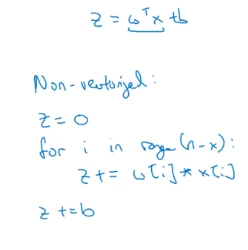 z = wᵀx + b
Non-vectorized:
z = 0
for i in range(n-x):
z += w[i] * x[i]
z += b